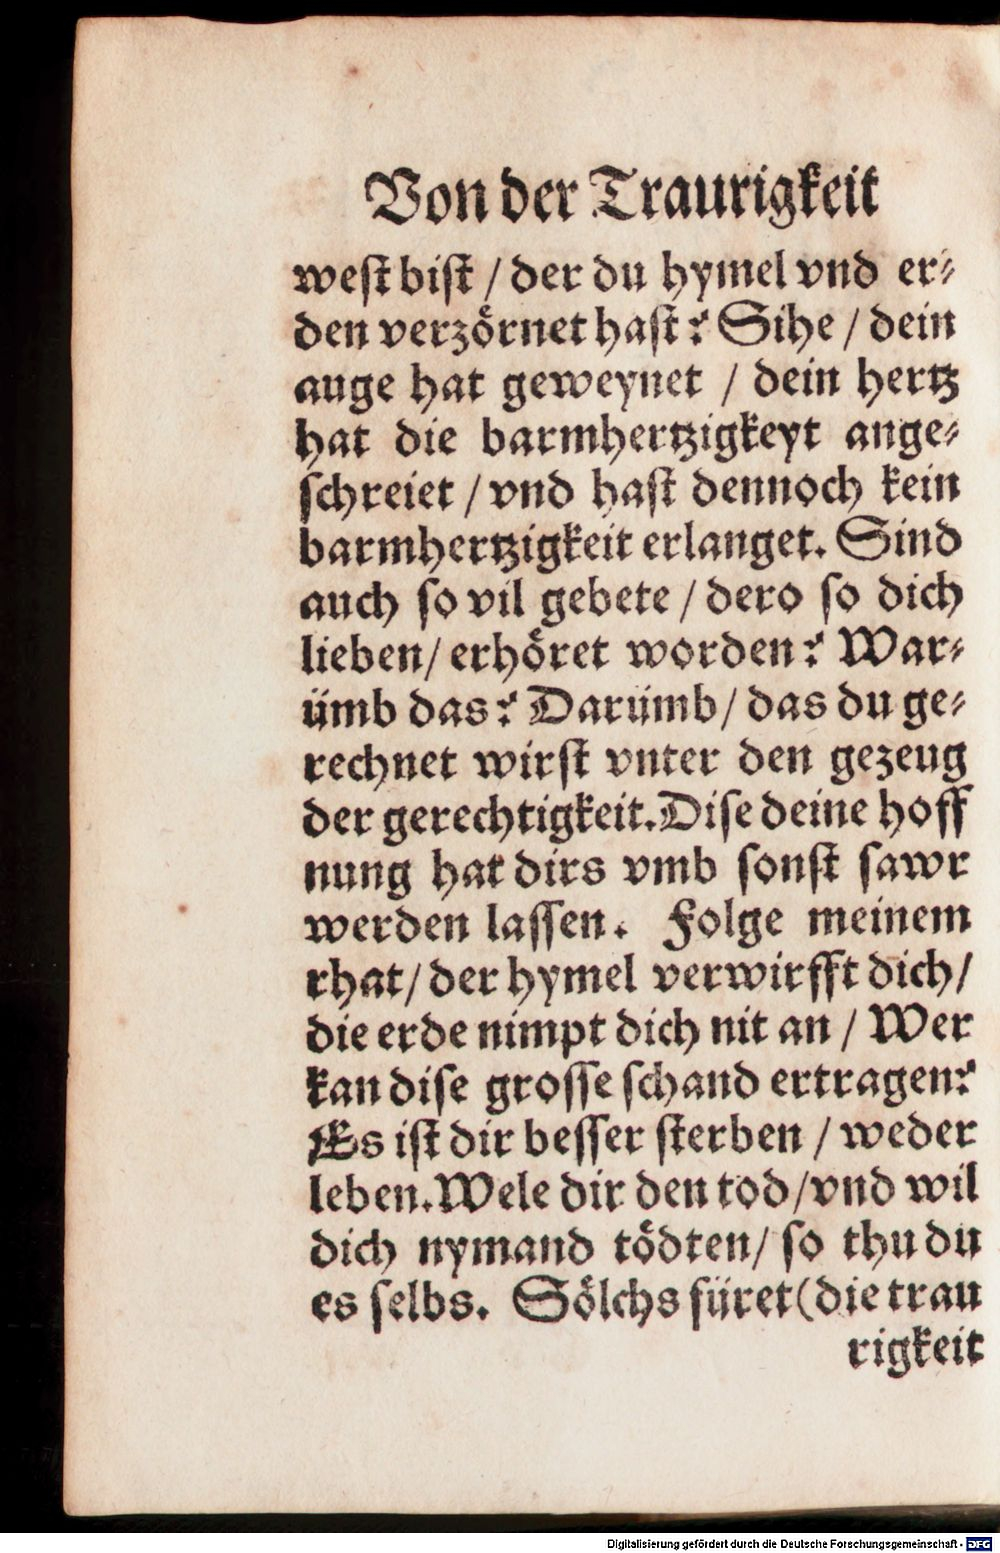 Von der Traurigkeit
west bist / der du hymel vnd er⸗
den verzoͤrnet hast? Sihe / dein
auge hat geweynet / dein hertz
hat die barmhertzigkeyt ange⸗
schreiet / vnd hast dennoch kein
barmhertzigkeit erlanget. Sind
auch so vil gebete / dero so dich
lieben / erhoͤret worden? War⸗
ümb das? Darümb / das du ge⸗
rechnet wirst vnter den gezeug
der gerechtigkeit. Dise deine hoff
nung hat dirs vmb sonst sawr
werden lassen. Folge meinem
rhat / der hymel verwirfft dich /
die erde nimpt dich nit an / Wer
kan dise grosse schand ertragen?
Es ist dir besser sterben / weder
leben. Wele dir den tod / vnd wil
dich nymand toͤdten / so thu du
es selbs. Soͤlchs füret (die trau
rigkeit
Digitalisierung gefördert durch die Deutsche Forschungsgemeinschaft - DFG